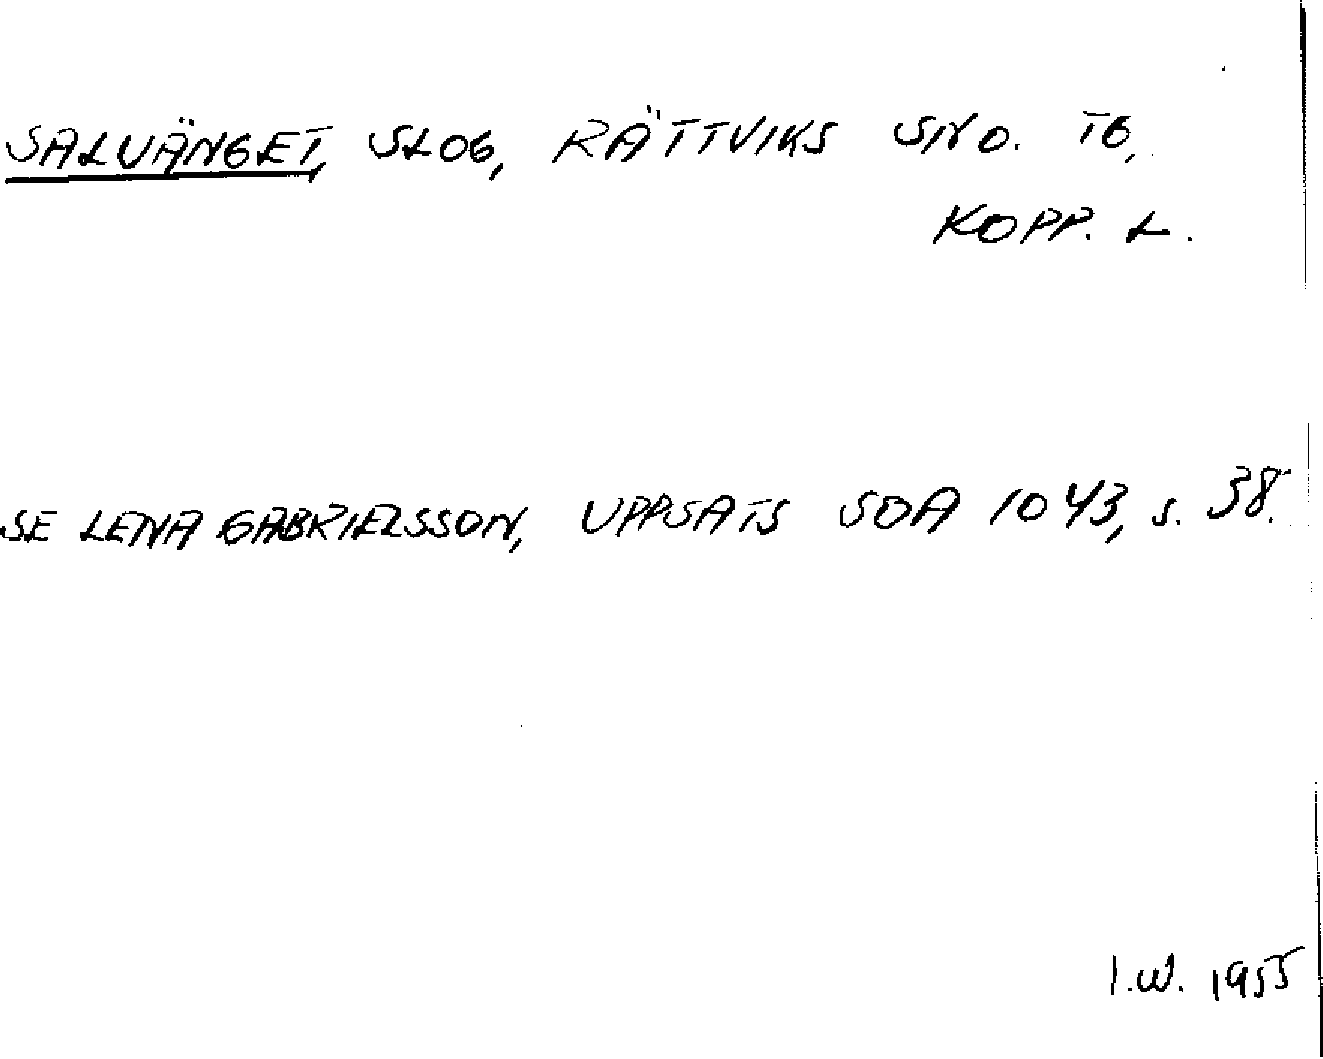 SALVÄNGET, SLOG, RÄTTVIKS SND. TG,
KOPP. L.
SE LENA GABRIELSSON, UPPSATS SOA 1043, s. 38.
I.W. 1955